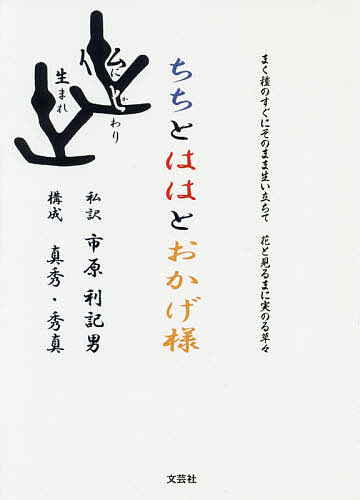 まく種のすぐにそのまま生い立ちて　花と見るまに実のる草々
ちちとははとおかげ様
仏にとかわり
生まれ
私訳　市原　利記男
構成　真秀・秀真
文芸社